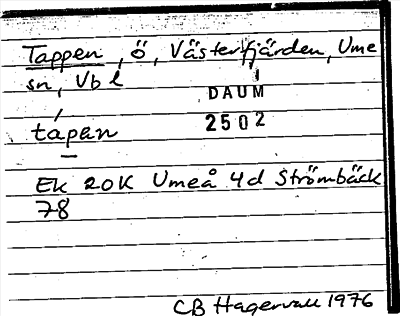 Tappen, ö, Västerfjärden, Ume
sn, Vb l
DAUM
2502
tápan
Ek 20K Umeå 4d Strömbäck
78
CB Hagervall 1976